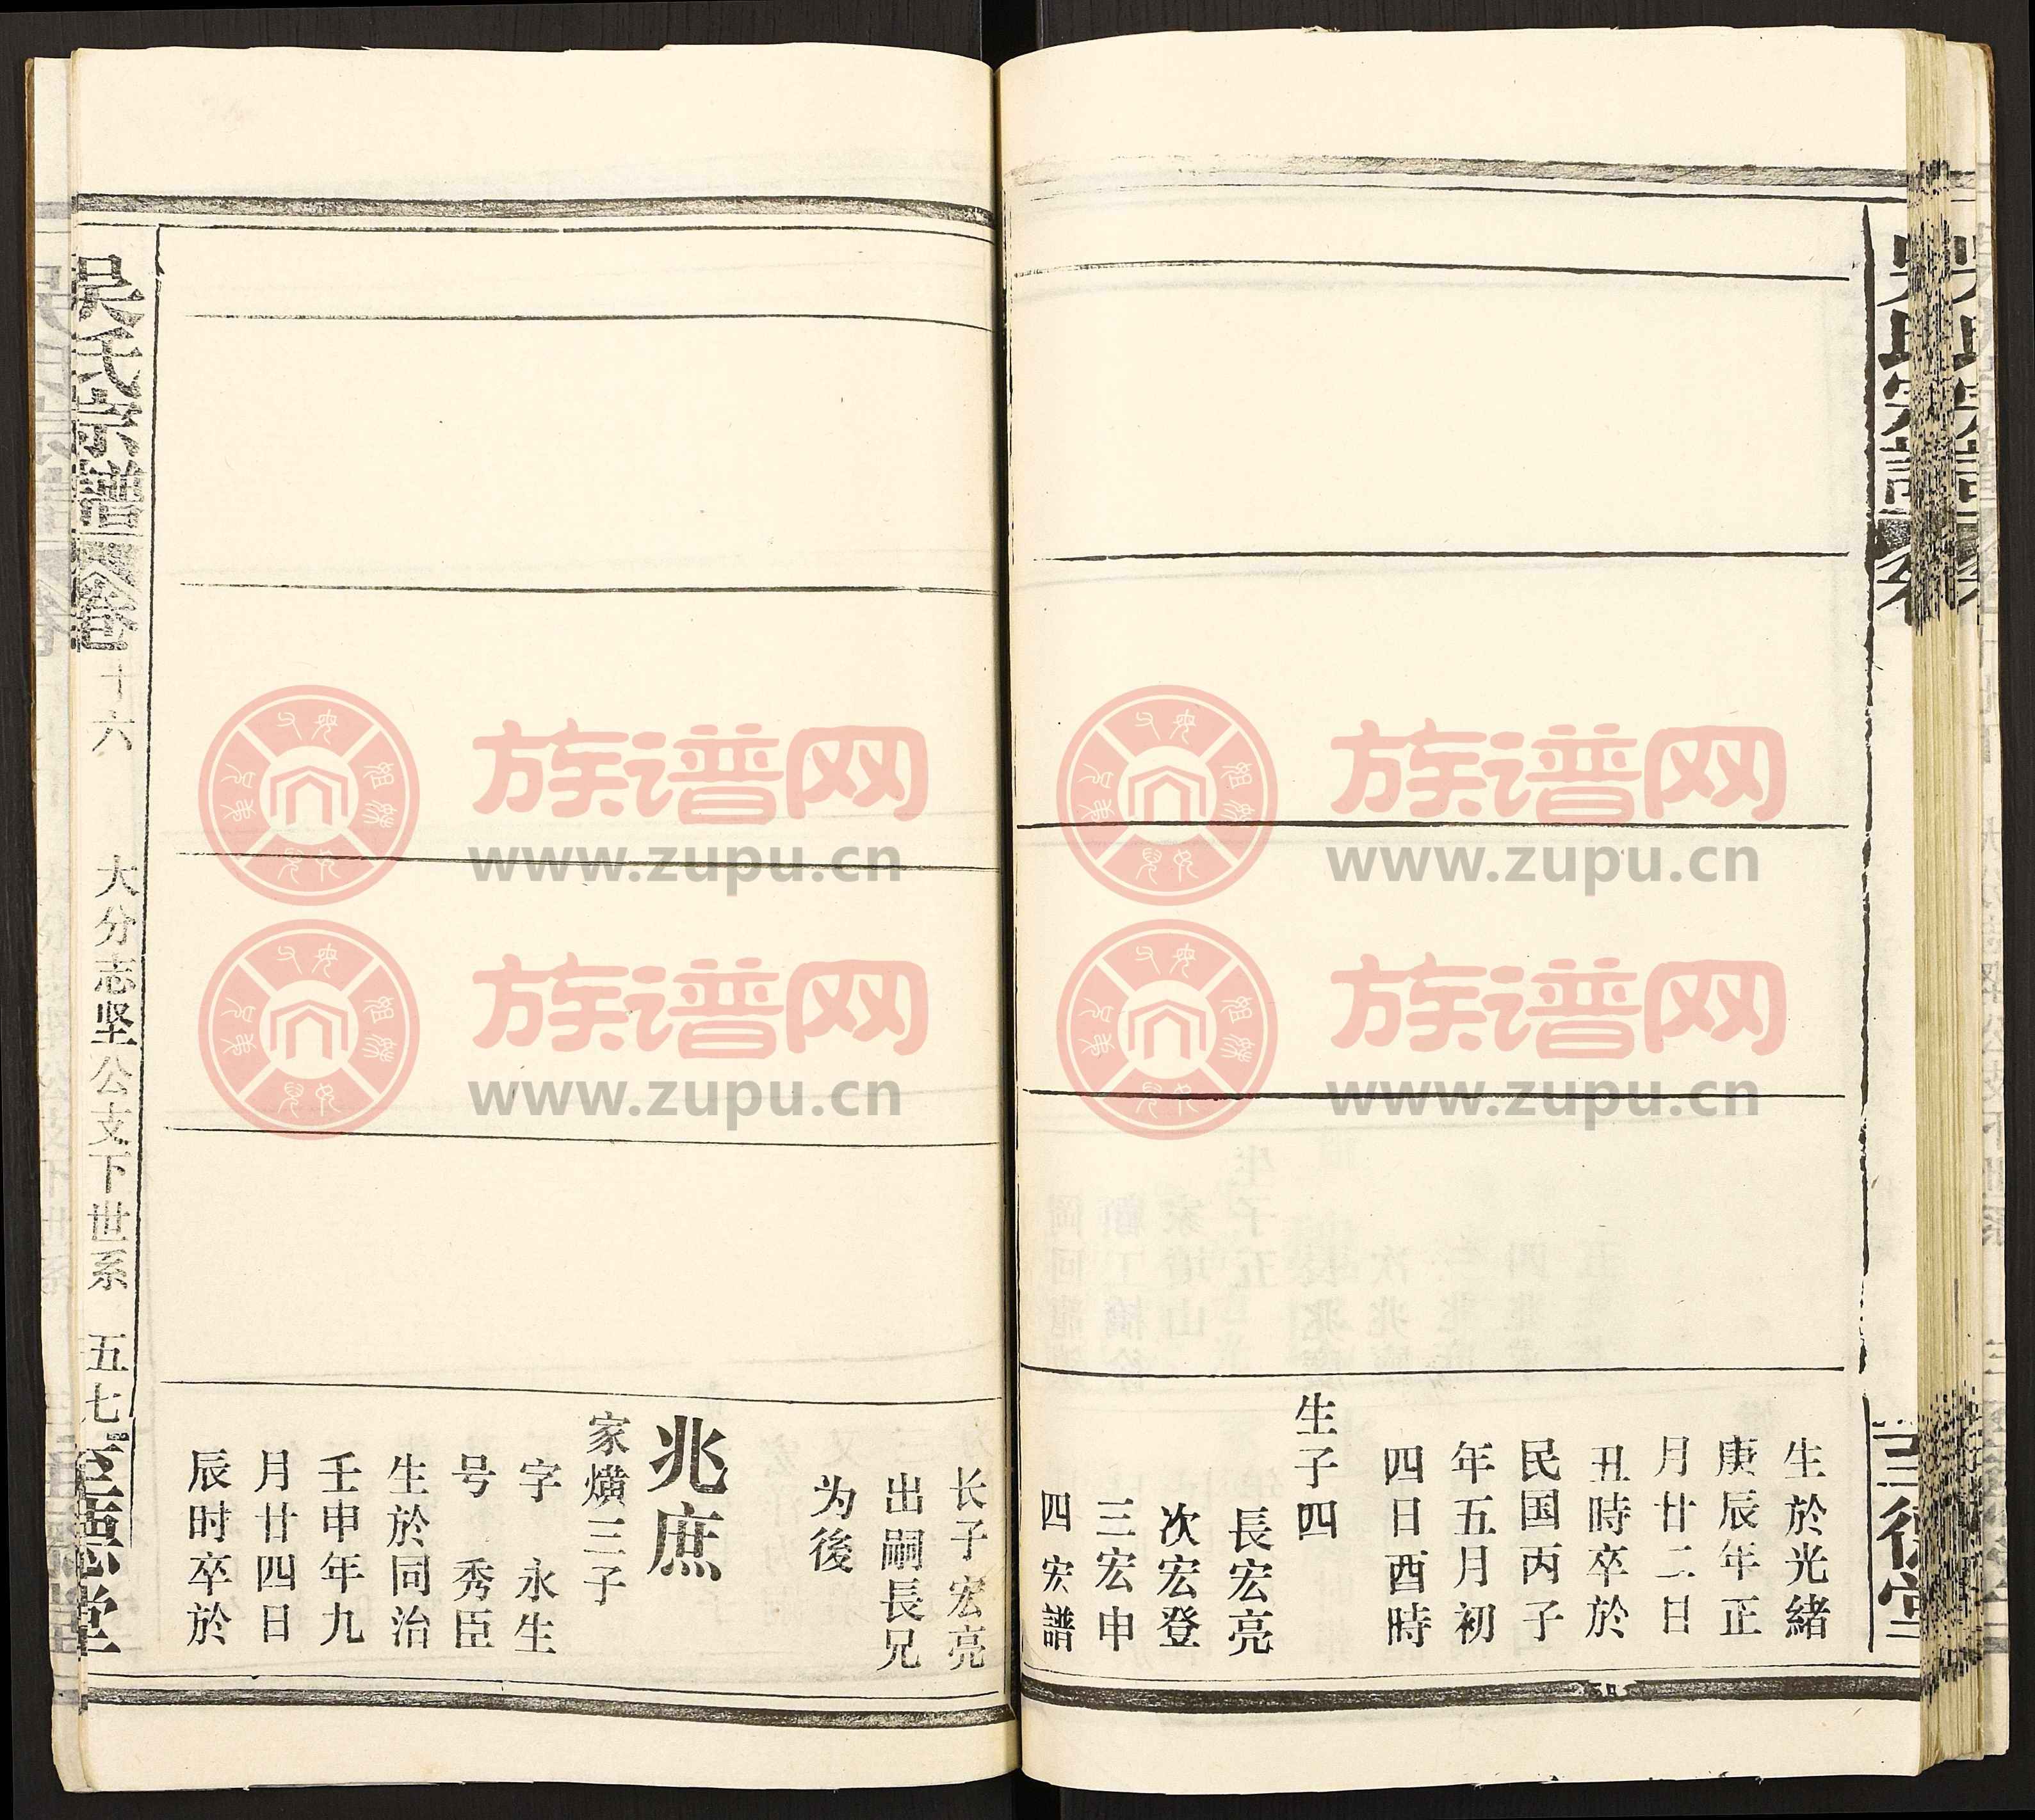 生於光緒
庚辰年正
月廿二日
丑時卒於
民国丙子
年五月初
四日酉時
生子四
長宏亮
次宏登
三宏申
四宏譜
长子宏亮
出嗣長兄
为後
兆庶
家熿三子
字永生
号秀臣
生於同治
壬申年九
月廿四日
辰时卒於
吴氏宗譜
卷十六
大分志坚公支下世系
五七
至德堂
族谱网
www.zupu.cn
族谱网
www.zupu.cn
族谱网
www.zupu.cn
族谱网
www.zupu.cn